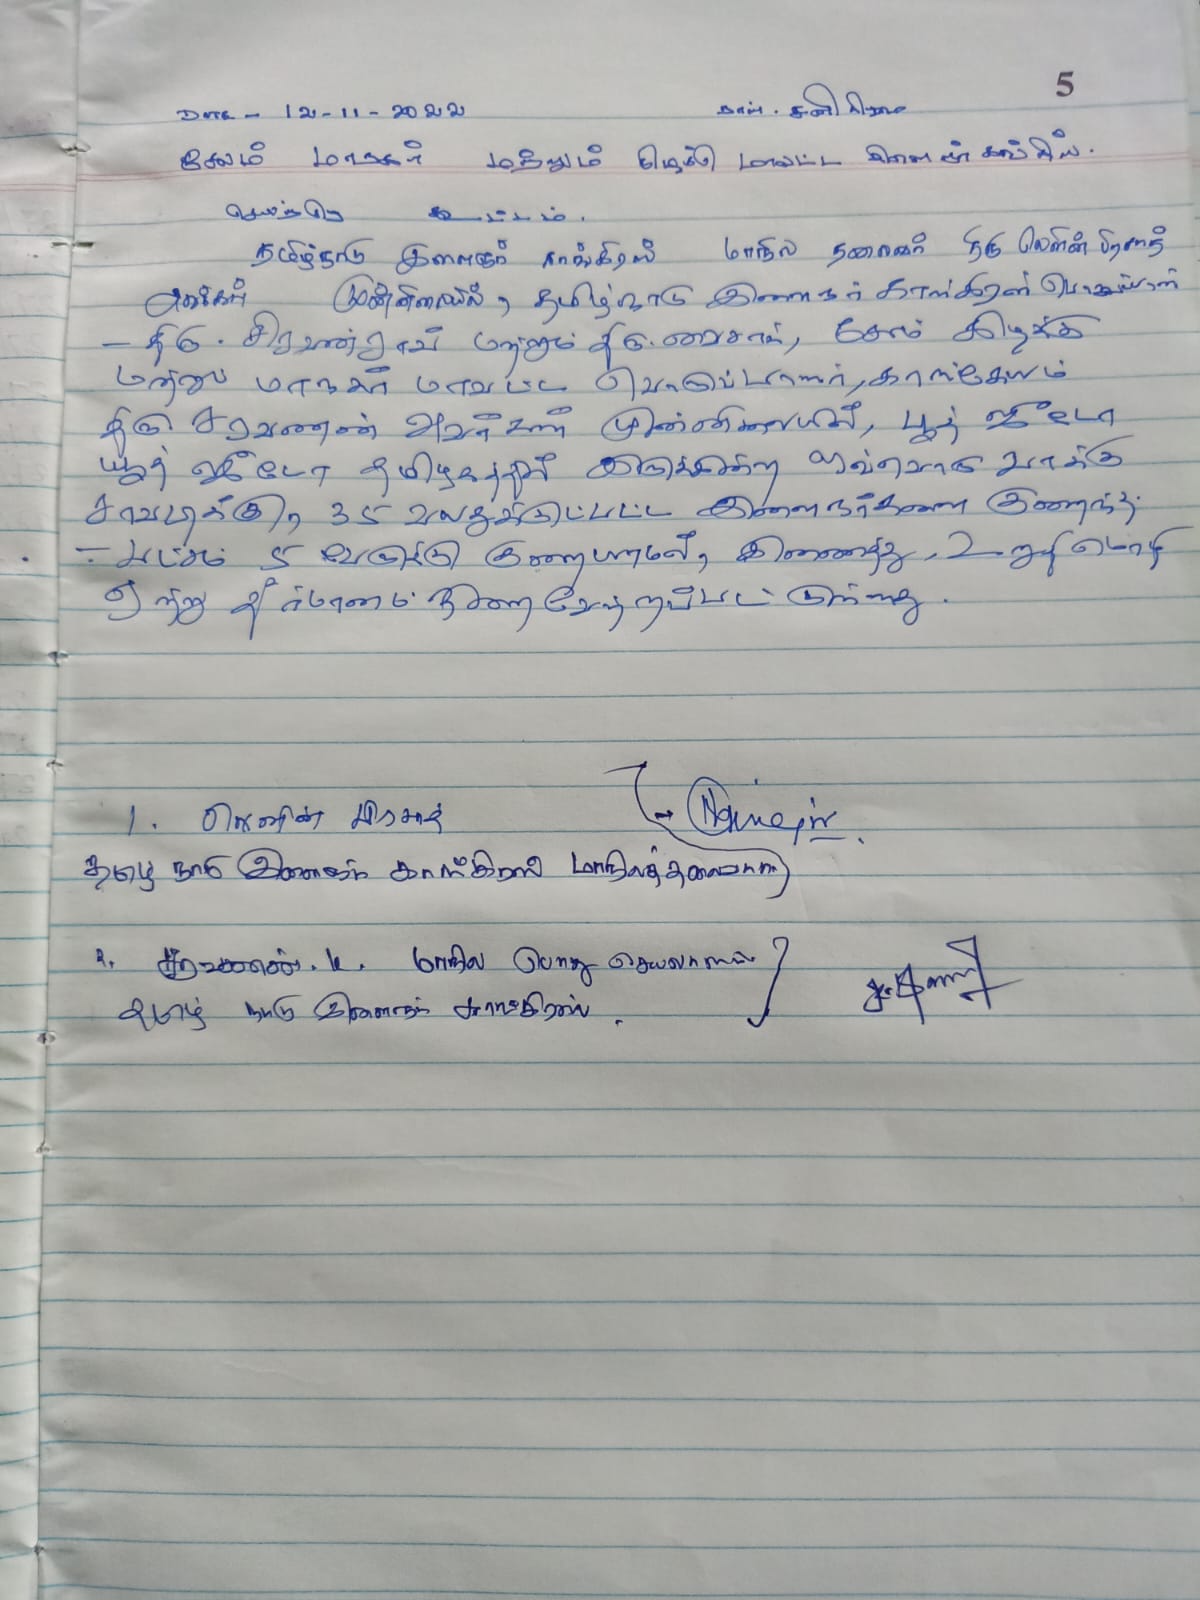 5
Date - 12-11-2022 நாள். சனி கிழமை
சேலம் மாநகர் மற்றும் கிழக்கு மாவட்ட இளைஞர் காங்கிரஸ்.
செயற்குழு கூட்டம்.
தமிழ்நாடு இளைஞர் காங்கிரஸ் மாநில தலைவர் திரு லெனின் பிரசாத்
அவர்கள் முன்னிலையில், தமிழ்நாடு இளைஞர் காங்கிரஸ் பொறுப்பாளர்
- திரு. சிரவண்ராவ் மற்றும் திரு. வைசாக், சேலம் கிழக்கு
மற்றும் மாநகர் மாவட்ட பொறுப்பாளர், காங்கேயம்
திரு சரவணன் அவர்கள் முன்னிலையில், பூத் ஜீடோ
யூத் ஜீடோ தமிழகத்தில் இருக்கின்ற ஒவ்வொரு வாக்கு
சாவடிக்கு, 35 வயதுக்குட்பட்ட இளைஞர்களை குறைந்த
- பட்சம் 5 பேருக்கு குறையாமல், இணைத்து, உறுதிமொழி
ஏற்று தீர்மானம் நிறைவேற்றப்பட்டுள்ளது.
1. லெனின் பிரசாத்
தமிழ் நாடு இளைஞர் காங்கிரஸ் மாநிலத்தலைவர்
2. சரவணன். மாநில பொது செயலாளர்
தமிழ் நாடு இளைஞர் காங்கிரஸ்.